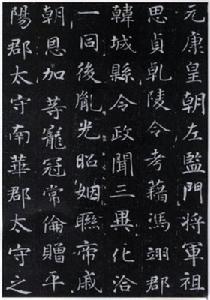 元康皇朝左監門將軍祖
思貞乾陵令考藉馮翊郡
韓城縣令政聞三異化洽
一同後胤光昭姻聯帝戚
朝恩加等寵冠常倫贈平
陽郡太守南華郡太守之